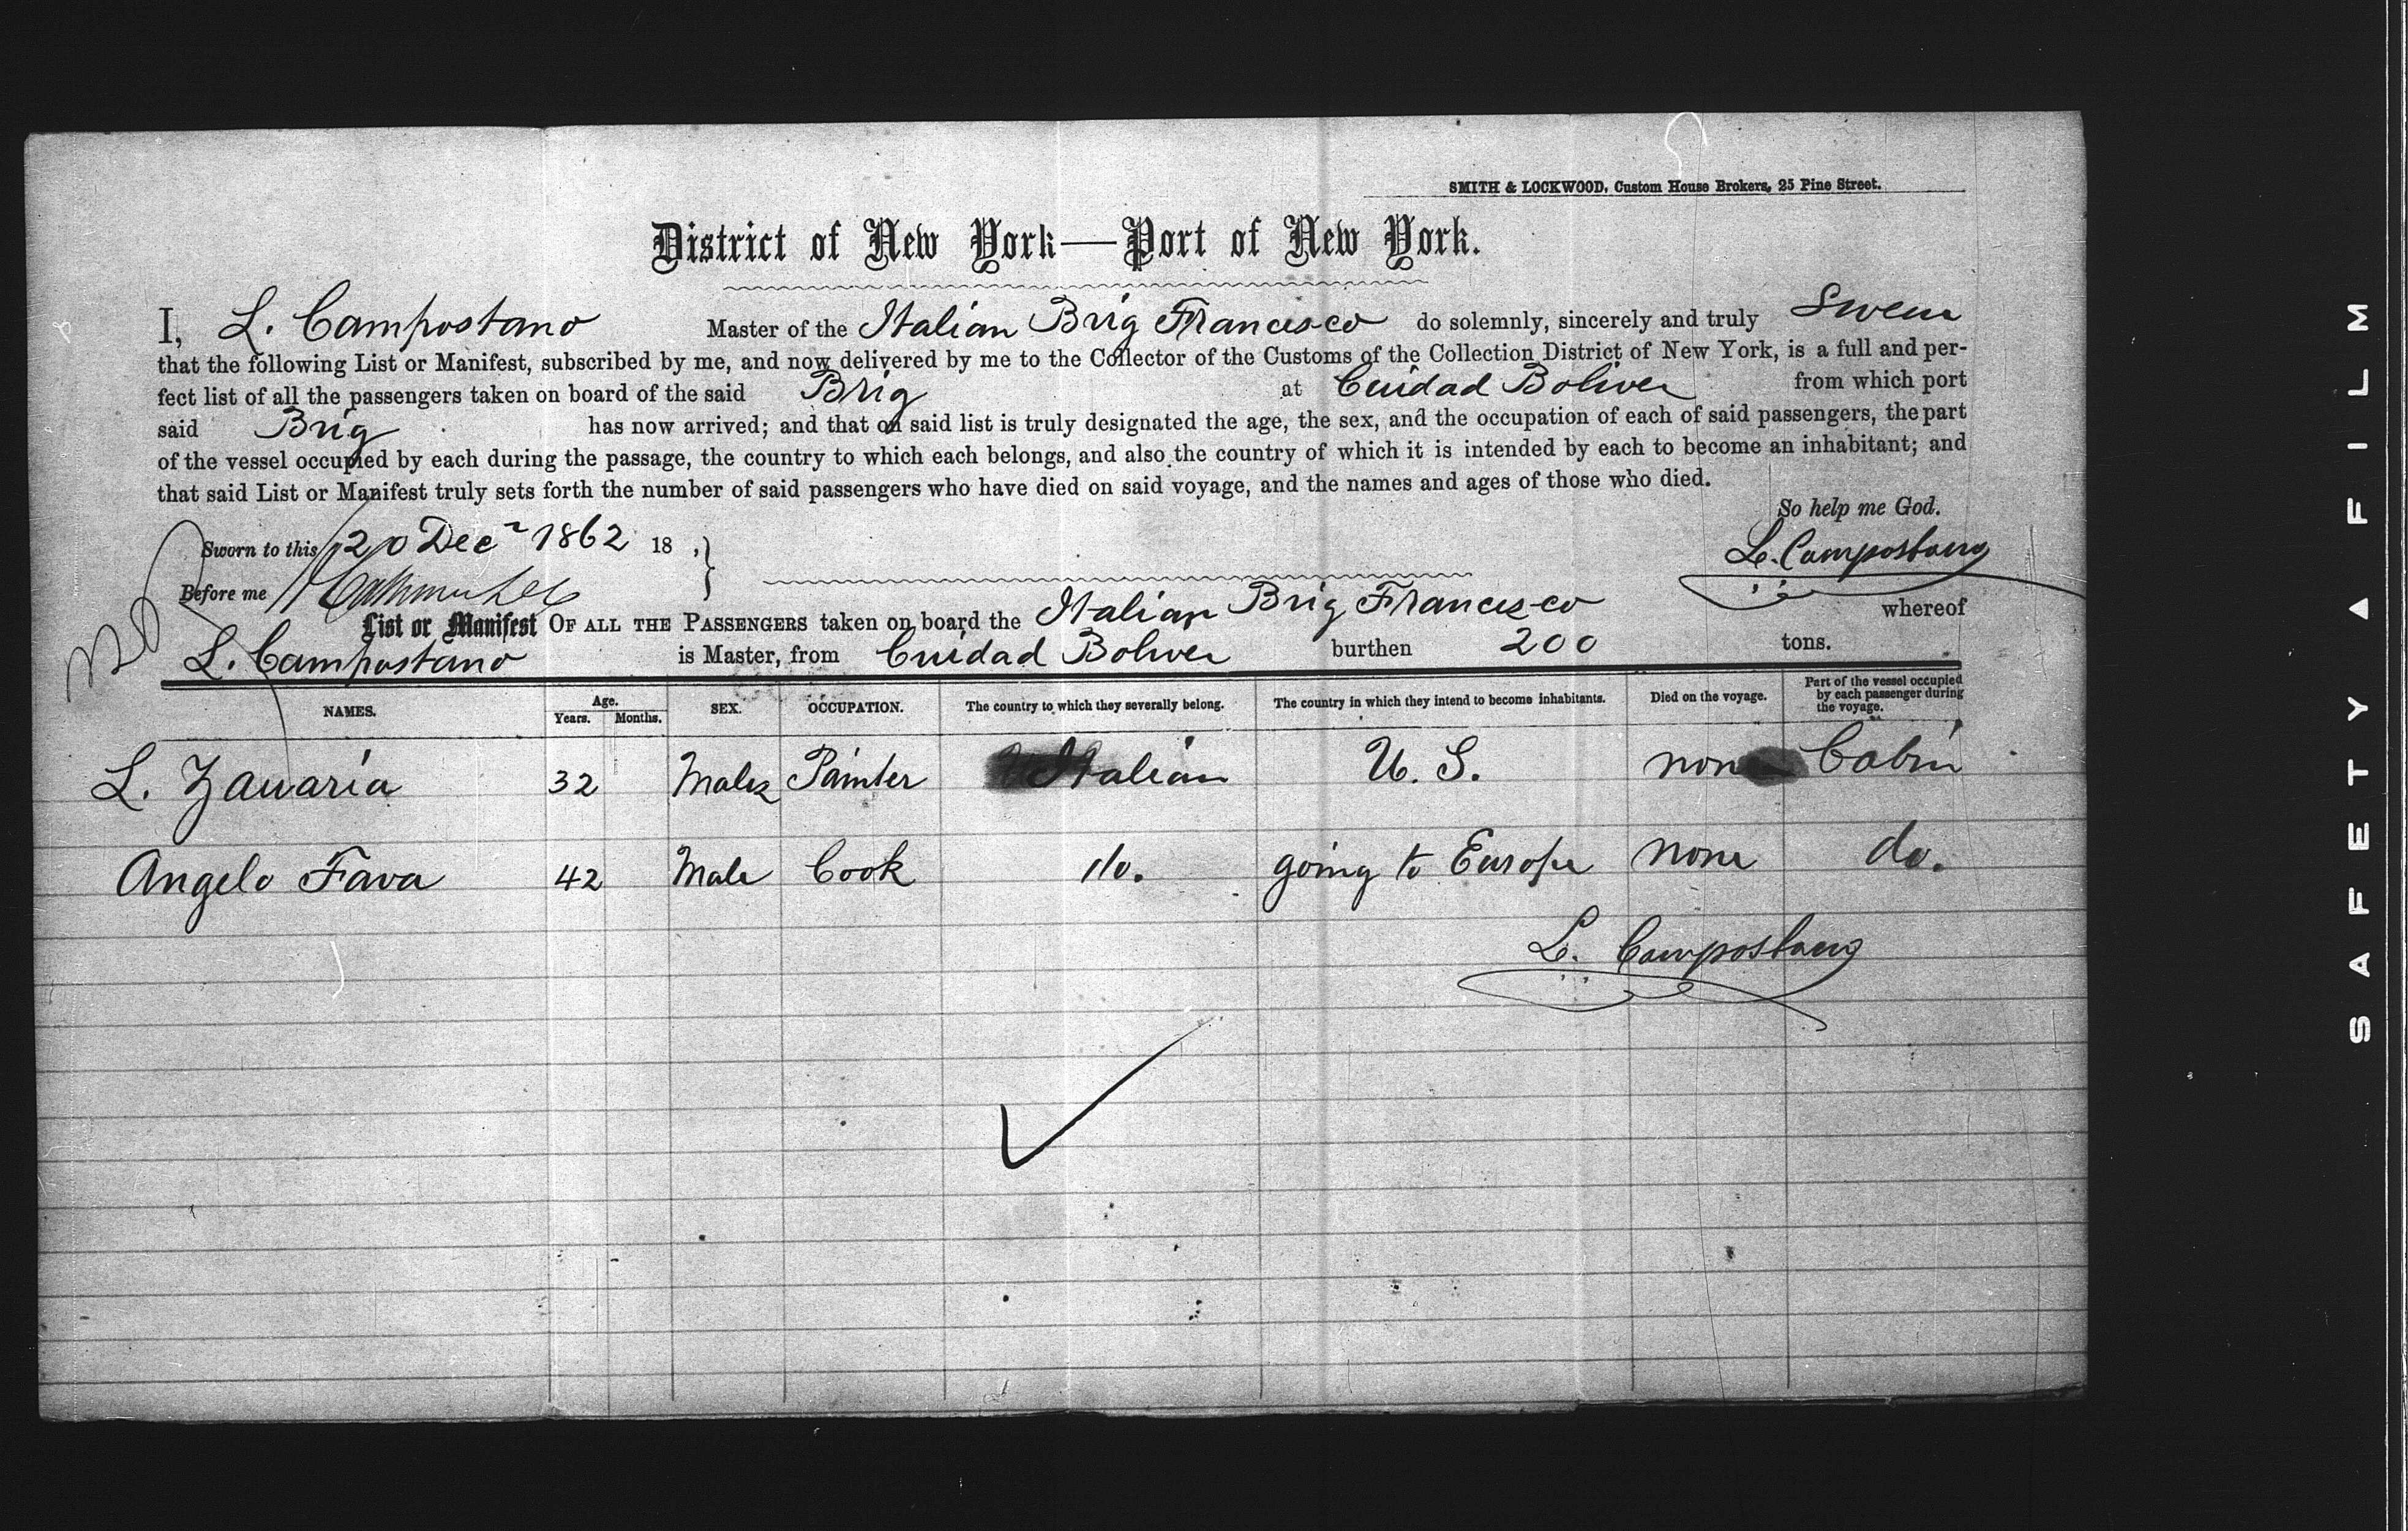 SMITH & LOCKWOOD, Custom House Brokers, 25 Pine Street.
District of New York—Port of New York.
I, L. Campostano Master of the Italian Brig Francesco do solemnly, sincerely and truly Swear
that the following List or Manifest, subscribed by me, and now delivered by me to the Collector of the Customs of the Collection District of New York, is a full and per-
fect list of all the passengers taken on board of the said Brig at Cuidad Boliver from which port
said Brig has now arrived; and that on said list is truly designated the age, the sex, and the occupation of each of said passengers, the part
of the vessel occupied by each during the passage, the country to which each belongs, and also the country of which it is intended by each to become an inhabitant; and
that said List or Manifest truly sets forth the number of said passengers who have died on said voyage, and the names and ages of those who died.
So help me God.
Sworn to this 20 Decr 1862 18 , L. Campostano
Before me
List or Manifest OF ALL THE PASSENGERS taken on board the Italian Brig Francesco whereof
L. Campostano is Master, from Cuidad Boliver burthen 200 tons.
NAMES. Age. Years. Months. SEX. OCCUPATION. The country to which they severally belong. The country in which they intend to become inhabitants. Died on the voyage. Part of the vessel occupied by each passenger during the voyage.
L. Zavaria 32 Male Painter Italian U. S. none Cabin
Angelo Fava 42 Male Cook do. going to Europe none do.
L. Campostano
SAFETY ▲ FILM